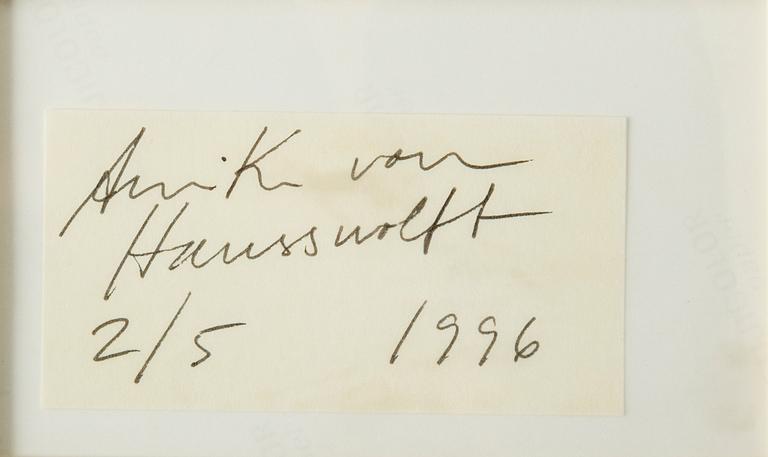 Annika von
Hausswolff
2/5 1996